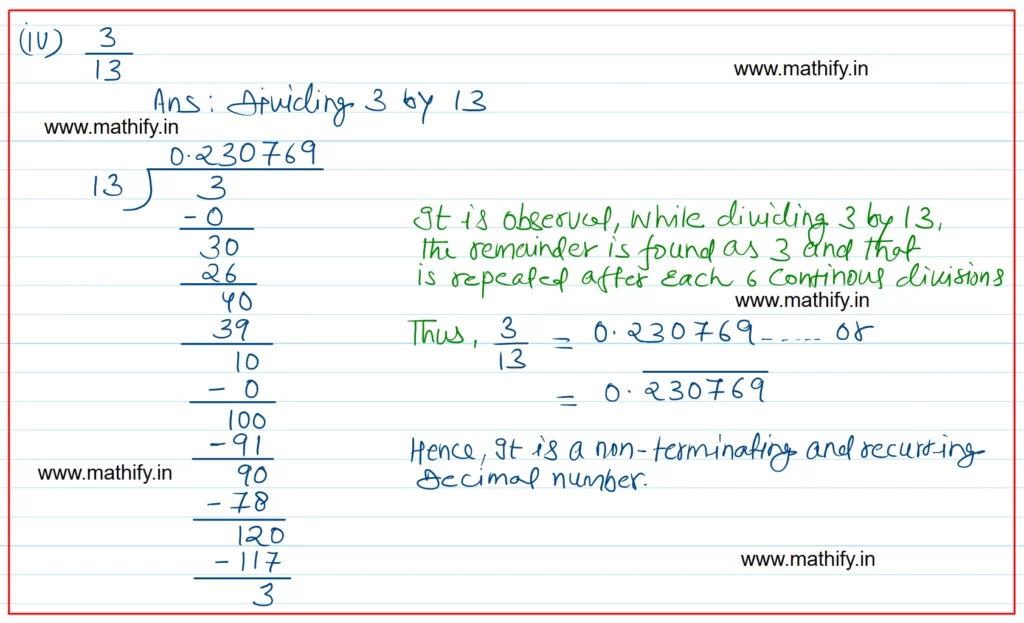 (iv) 3
13
www.mathify.in
Ans: Dividing 3 by 13
www.mathify.in
0.230769
13 3
- 0
30
26
40
39
10
- 0
100
- 91
90
- 78
120
- 117
3
It is observed, while dividing 3 by 13,
the remainder is found as 3 and that
is repeated after each 6 continous divisions
www.mathify.in
Thus, 3/13 = 0.230769....... or
= 0.2̅3̅0̅7̅6̅9̅
Hence, It is a non-terminating and recurring
Decimal number.
www.mathify.in
www.mathify.in